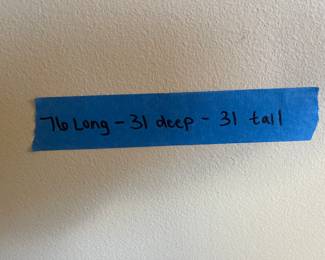 76 Long - 31 deep - 31 tall